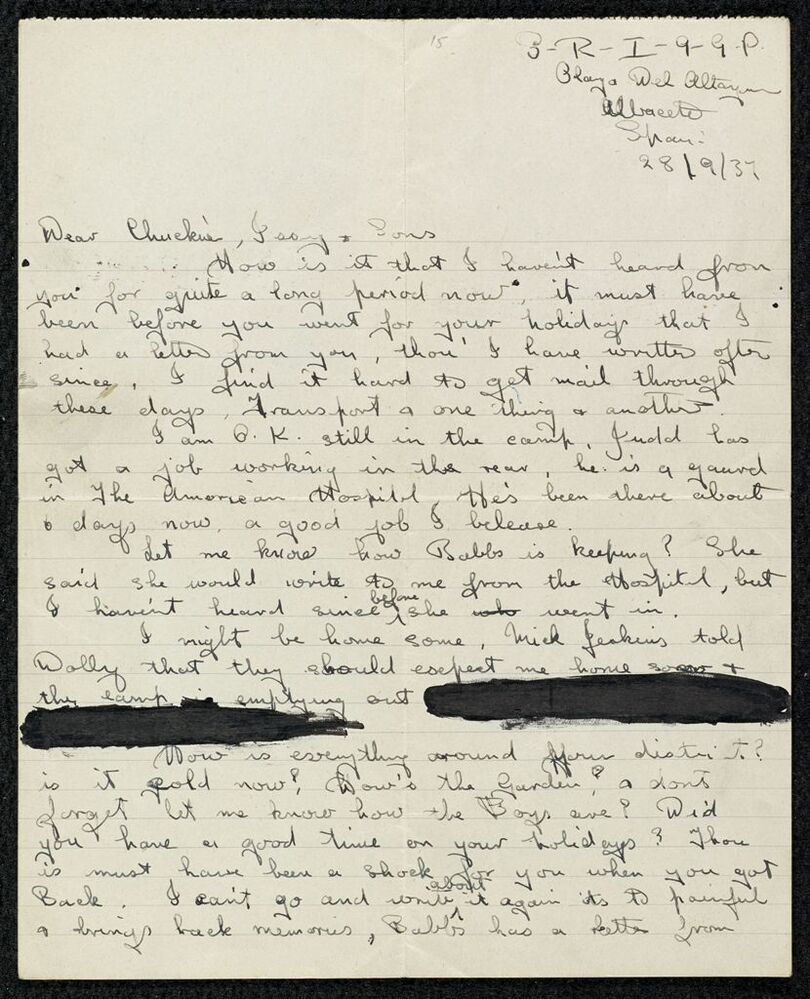 15.
3-R-I-9-9-P.
Playa Del Altazona
Albacete
Spain:
28/9/37
Dear Chuckie, & Sons
How is it that I haven't heard from
you for quite a long period now, it must have
been before you went for your holidays that I
had a letter from you, tho' I have written often
since, I find it hard to get mail through
these days, Transport & one thing & another.
I am O.K. still in the camp, Judd has
got a job working in the rear, he is a gaurd
in The American Hospital, He's been there about
6 days now, a good job I beleave.
Let me know how Babbs is keeping? She
said she would write to me from the Hospital, but
I haven't heard since before she who went in.
I might be home some, Mick Jenkins told
Dolly that they should exspect me home soon &
the camp is emptying out
How is everything around your district?
is it cold now? How's the Garden? & dont
forget let me know how the Boys are? Did
you have a good time on your holidays? Thou
is must have been a shock for you when you got
Back. I can't go and write about it again its to painful
& brings back memories, Babbs has a letter from